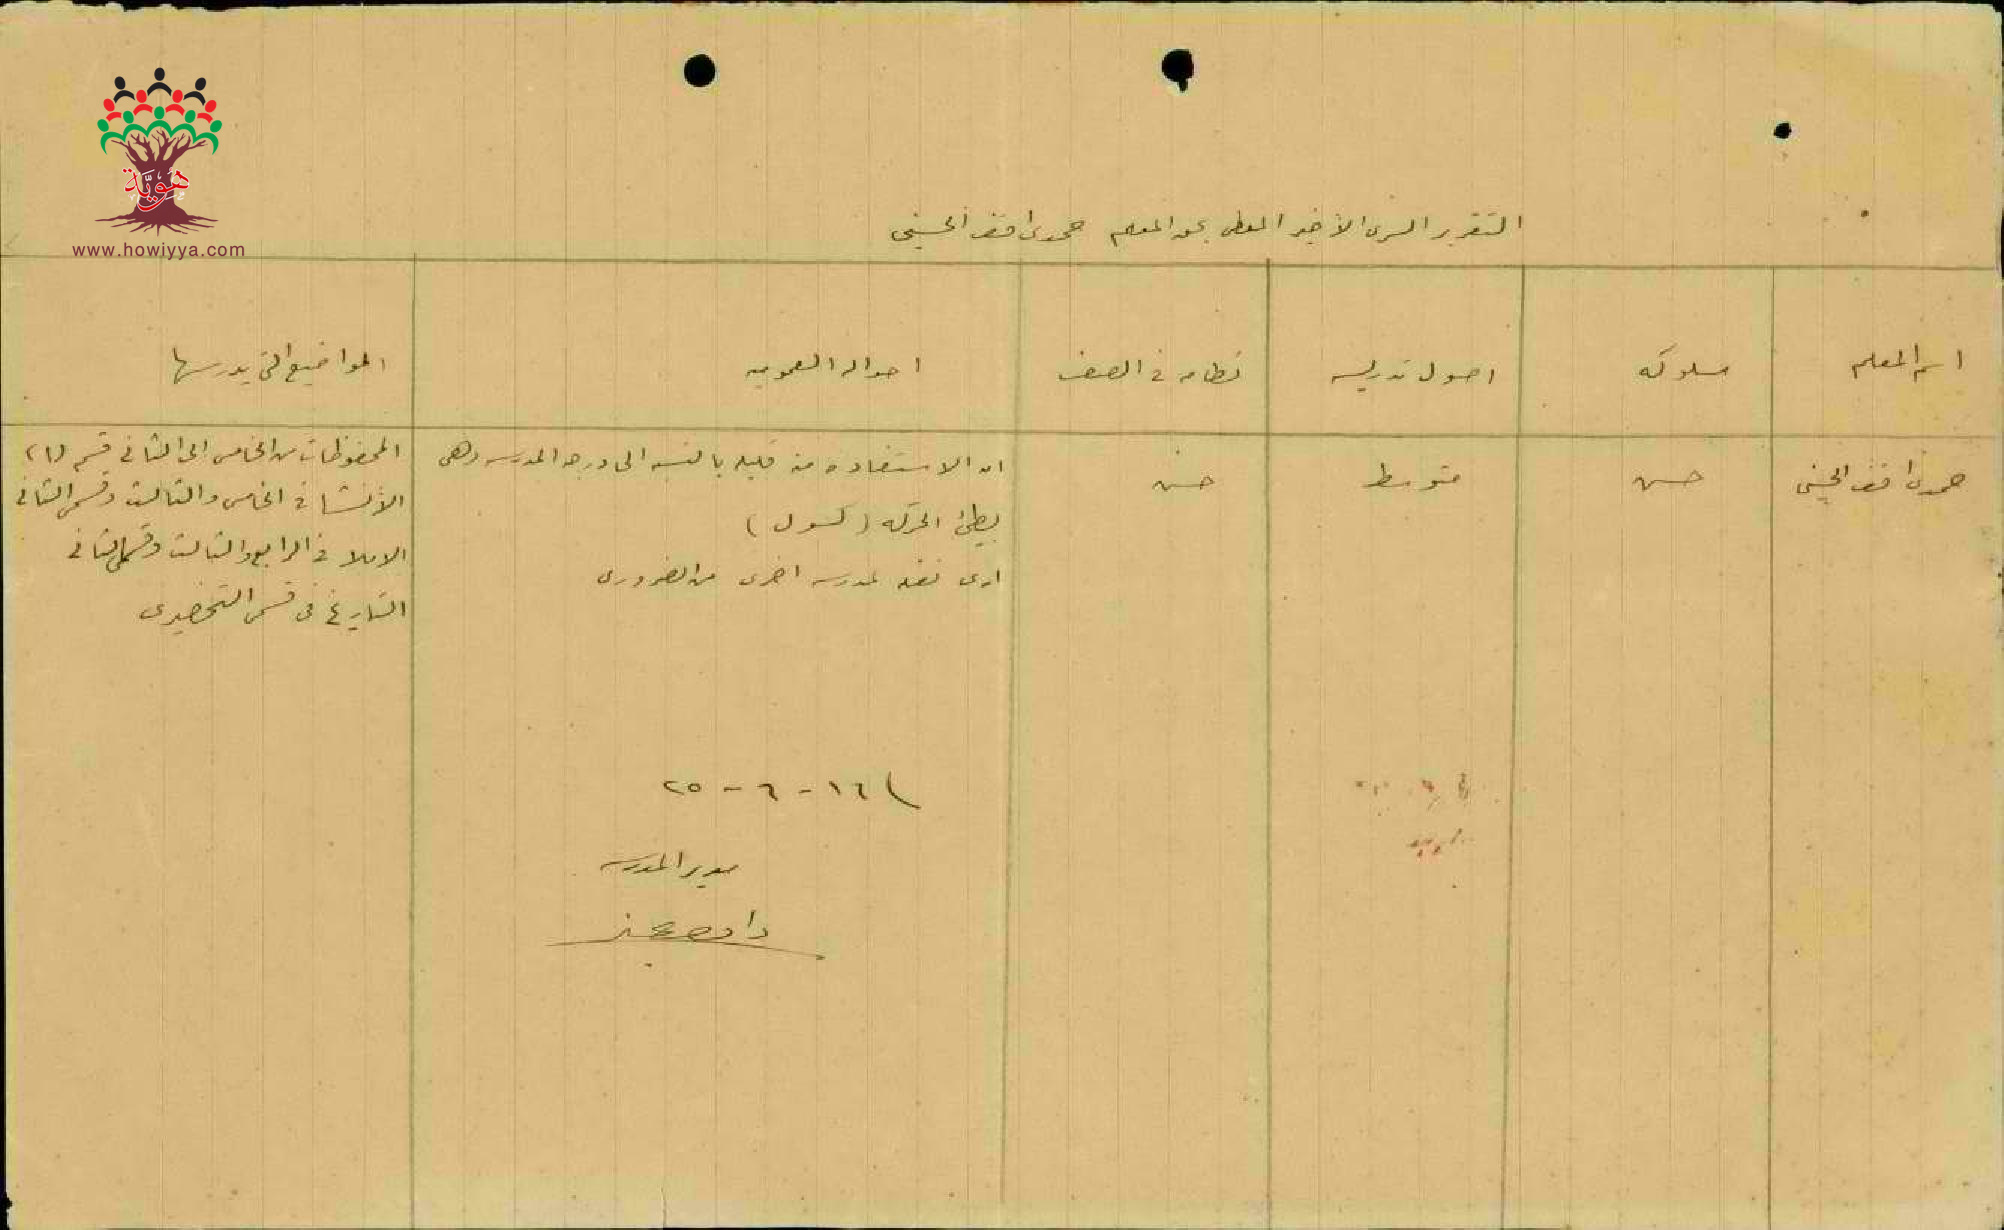 هوية
www.howiyya.com
التقرير السري الأخير المعطى بحق المعلم حمدي افندي الحسيني
اسم المعلم
سلوكه
اصول تدريسه
نظامه في الصف
احواله العموميه
المواضيع التي يدرسها
حمدي افندي الحسيني
حسن
متوسط
حسن
ان الاستفاده منه قليله بالنسبه الى درجه المدرسه وهي
بطيئ الحركه (كسول)
ارى نقله لمدرسه اخرى من الضروري
المحفوظات من الخامس الى الثاني قسم (١)
الأنشا في الخامس والثالث وقسمي الثاني
الاملا في الرابع والثالث وقسمي الثاني
التاريخ في قسمي التحضيري
١٦ - ٦ - ٢٥
مدير المدرسه